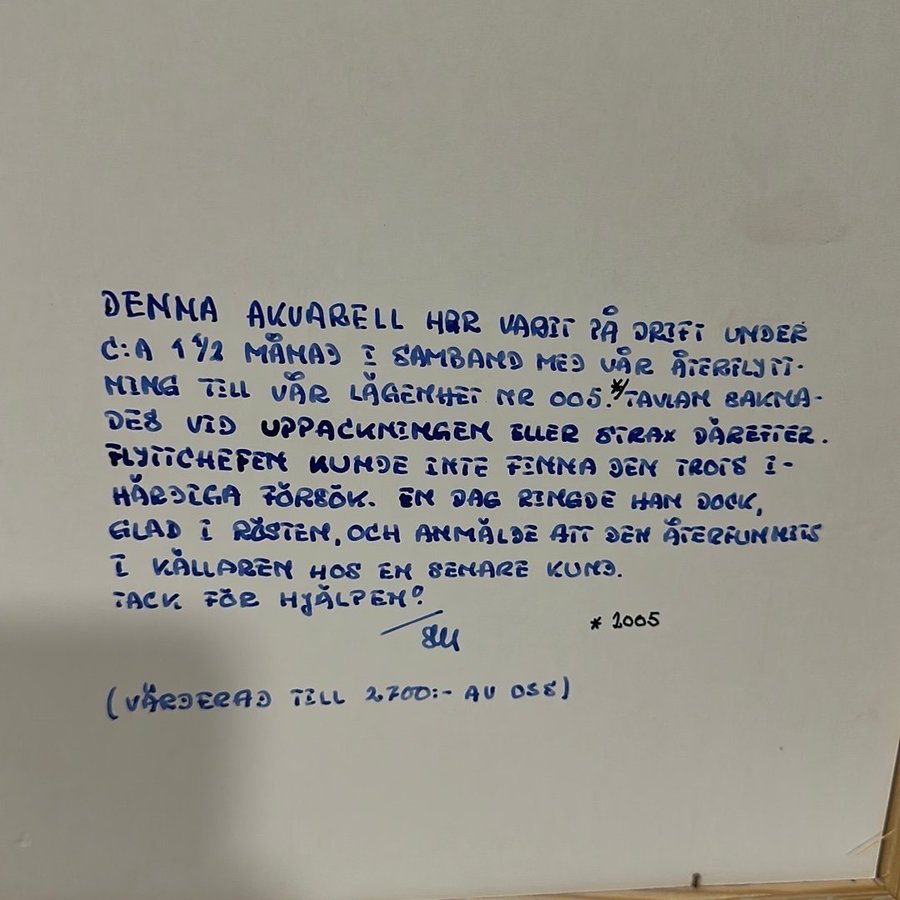 DENNA AKVARELL HAR VARIT PÅ DRIFT UNDER
C:A 1 1/2 MÅNAD I SAMBAND MED VÅR ÅTERFLYTT-
NING TILL VÅR LÄGENHET NR 005.* TAVLAN SAKNA-
DES VID UPPACKNINGEN ELLER STRAX DÄREFTER.
FLYTTCHEFEN KUNDE INTE FINNA DEN TROTS I-
HÄRDIGA FÖRSÖK. EN DAG RINGDE HAN DOCK,
GLAD I RÖSTEN, OCH ANMÄLDE ATT DEN ÅTERFUNNITS
I KÄLLAREN HOS EN SENARE KUND.
TACK FÖR HJÄLPEN!
* 1005
(VÄRDERAD TILL 2700:- AV OSS)